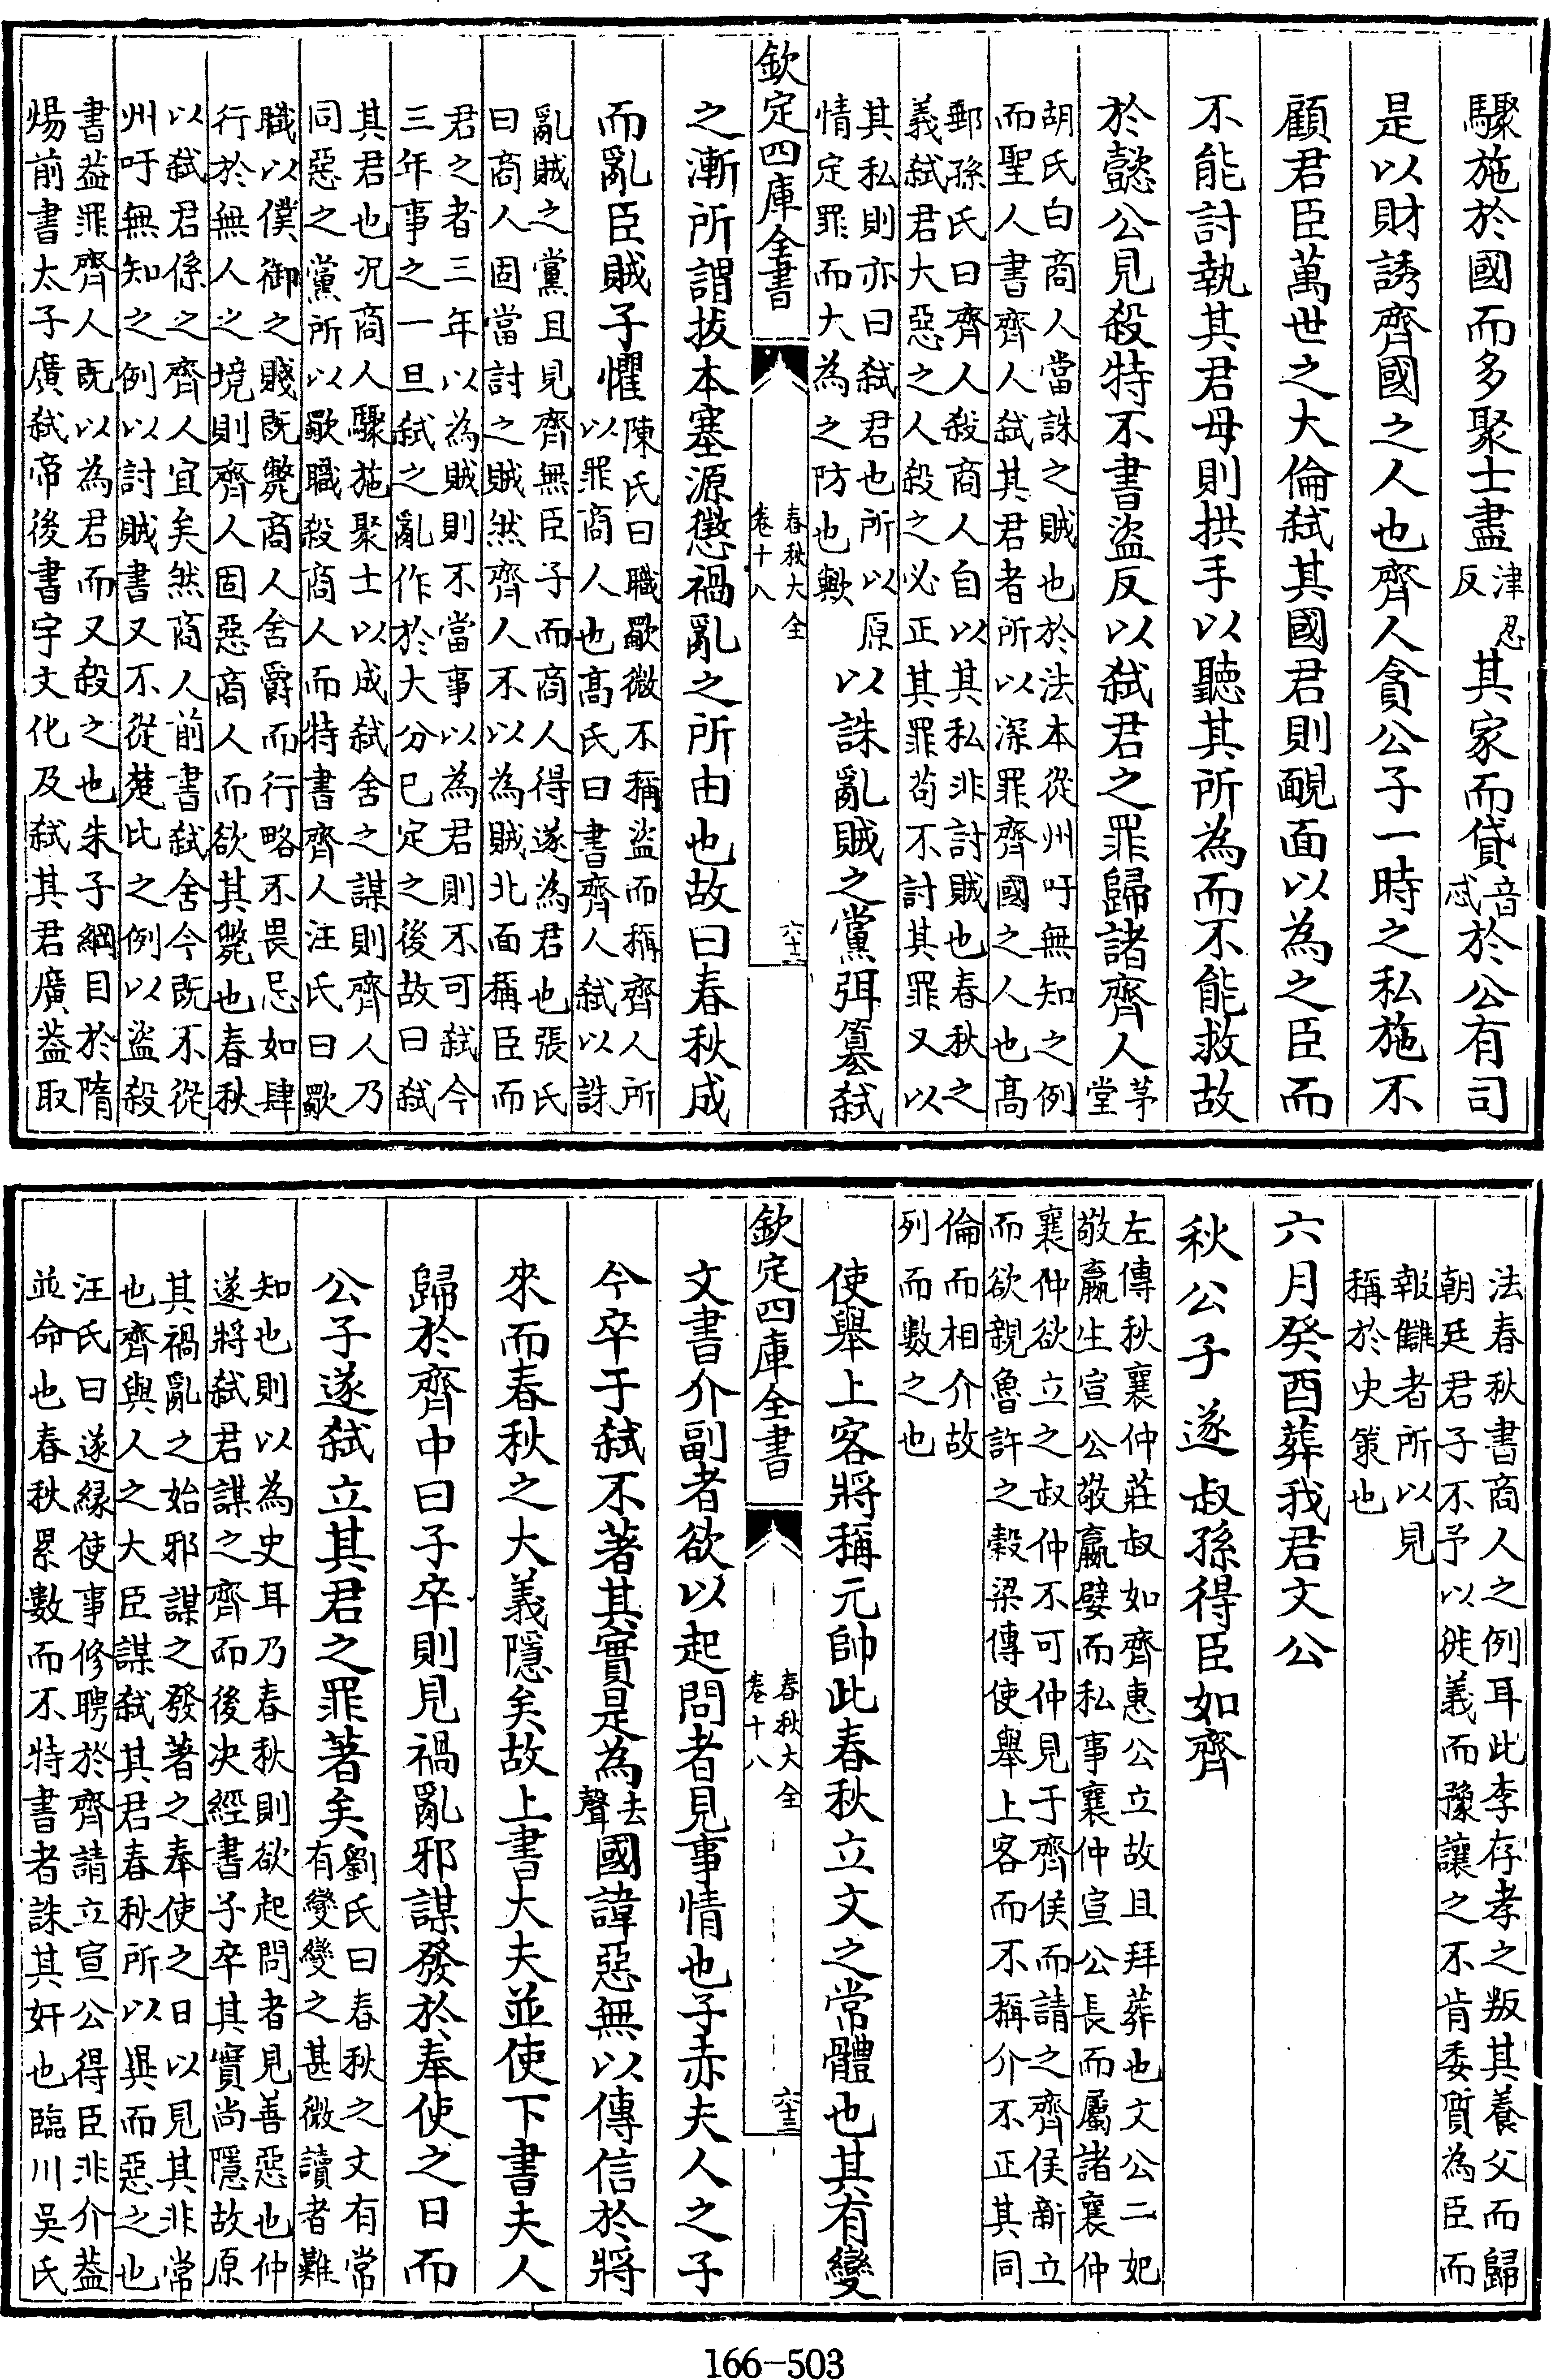 驟施於國而多聚士盡津忍反其家而貸音忒於公有司
是以財誘齊國之人也齊人貪公子一時之私施不
顧君臣萬世之大倫弑其國君則靦面以為之臣而
不能討執其君母則拱手以聽其所為而不能救故
於懿公見殺特不書盜反以弑君之罪歸諸齊人茅堂
胡氏曰商人當誅之賊也於法本從州吁無知之例
而聖人書齊人弑其君者所以深罪齊國之人也高
郵孫氏曰齊人殺商人自以其私非討賊也春秋之
義弑君大惡之人殺之必正其罪茍不討其罪又以
其私則亦曰弑君也所以原
情定罪而大為之防也歟
以誅亂賊之黨弭篡弑
欽定四庫全書
春秋大全
卷十八
六十二
之漸所謂拔本塞源懲禍亂之所由也故曰春秋成
而亂臣賊子懼
陳氏曰職歜微不稱盜而稱齊人所
以罪商人也高氏曰書齊人弑以誅
亂賊之黨且見齊無臣子而商人得遂為君也張氏
曰商人固當討之賊然齊人不以為賊北面稱臣而
君之者三年以為賊則不當事以為君則不可弑今
三年事之一旦弑之亂作於大分已定之後故曰弑
其君也況商人驟施聚士以成弑舍之謀則齊人乃
同惡之黨所以歜職殺商人而特書齊人汪氏曰歜
職以僕御之賤既斃商人舍爵而行略不畏忌如肆
行於無人之境則齊人固惡商人而欲其斃也春秋
以弑君係之齊人宜矣然商人前書弑舍今既不從
州吁無知之例以討賊書又不從楚比之例以盜殺
書益罪齊人既以為君而又殺之也朱子綱目於隋
煬前書太子廣弑帝後書宇文化及弑其君廣葢取
法春秋書商人之例耳此李存孝之叛其養父而歸
朝廷君子不予以徙義而豫讓之不肯委質為臣而
報讎者所以見
稱於史策也
六月癸酉葬我君文公
秋公子遂叔孫得臣如齊
左傳秋襄仲莊叔如齊惠公立故且拜葬也文公二妃
敬嬴生宣公敬嬴嬖而私事襄仲宣公長而屬諸襄仲
襄仲欲立之叔仲不可仲見于齊侯而請之齊侯新立
而欲親魯許之穀梁傳使舉上客而不稱介不正其同
倫而相介故
列而數之也
使舉上客將稱元帥此春秋立文之常體也其有變
欽定四庫全書
春秋大全
卷十八
六十三
文書介副者欲以起問者見事情也子赤夫人之子
今卒于弑不著其實是為去聲國諱惡無以傳信於將
來而春秋之大義隱矣故上書大夫並使下書夫人
歸於齊中曰子卒則見禍亂邪謀發於奉使之日而
公子遂弑立其君之罪著矣
劉氏曰春秋之文有常
有變變之甚微讀者難
知也則以為史耳乃春秋則欲起問者見善惡也仲
遂將弑君謀之齊而後决經書子卒其實尚隱故原
其禍亂之始邪謀之發著之奉使之日以見其非常
也齊與人之大臣謀弑其君春秋所以與而惡之也
汪氏曰遂緣使事修聘於齊請立宣公得臣非介葢
並命也春秋累數而不特書者誅其奸也臨川吳氏
166-503